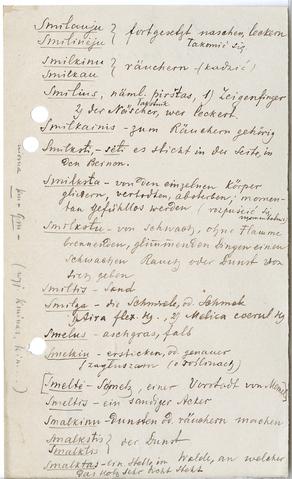 Smilauju } fortgesetzt naschen, leckern
Smilinėju } Łakomić się
Smilkinu } räuchern (kadzić)
Smilkau
Smilius, näml. pirsztas, 1) Zeigenfinger
2) der Näscher, wer leckert.
Smilkainis - zum Räuchern gehörig
Smilksti, - es sticht in der Seite, in
den Beinen.
Smilksta - von den einzelnen Körper
gliedern, vertodten, absterben; momen-
tan gefühllos werden
Smilkstu - von Schwach, ohne Flamme
brennenden, glimmenden Dingen einen
Schwachen Rauch oder Dunst von
sich geben
Smiltis - Sand
Smilga - die Schmiele, od. Schmele
Aira flex. 2) Melica coerul
Smelus - aschgrau, falb
Smelkiu - ersticken, od. genauer
(zagłuszam (o roślinach)
[Smeltė - Schmelz, einer Vorstadt von Memel]
Smeltis - ein sandiger Acker
Smalkinu - Dunsten od. räuchern machen
Smalkstis } der Dunst
Smalktis
Smalktas - ein Stelle im Walde, an welcher
das Holz sehr dicht steht